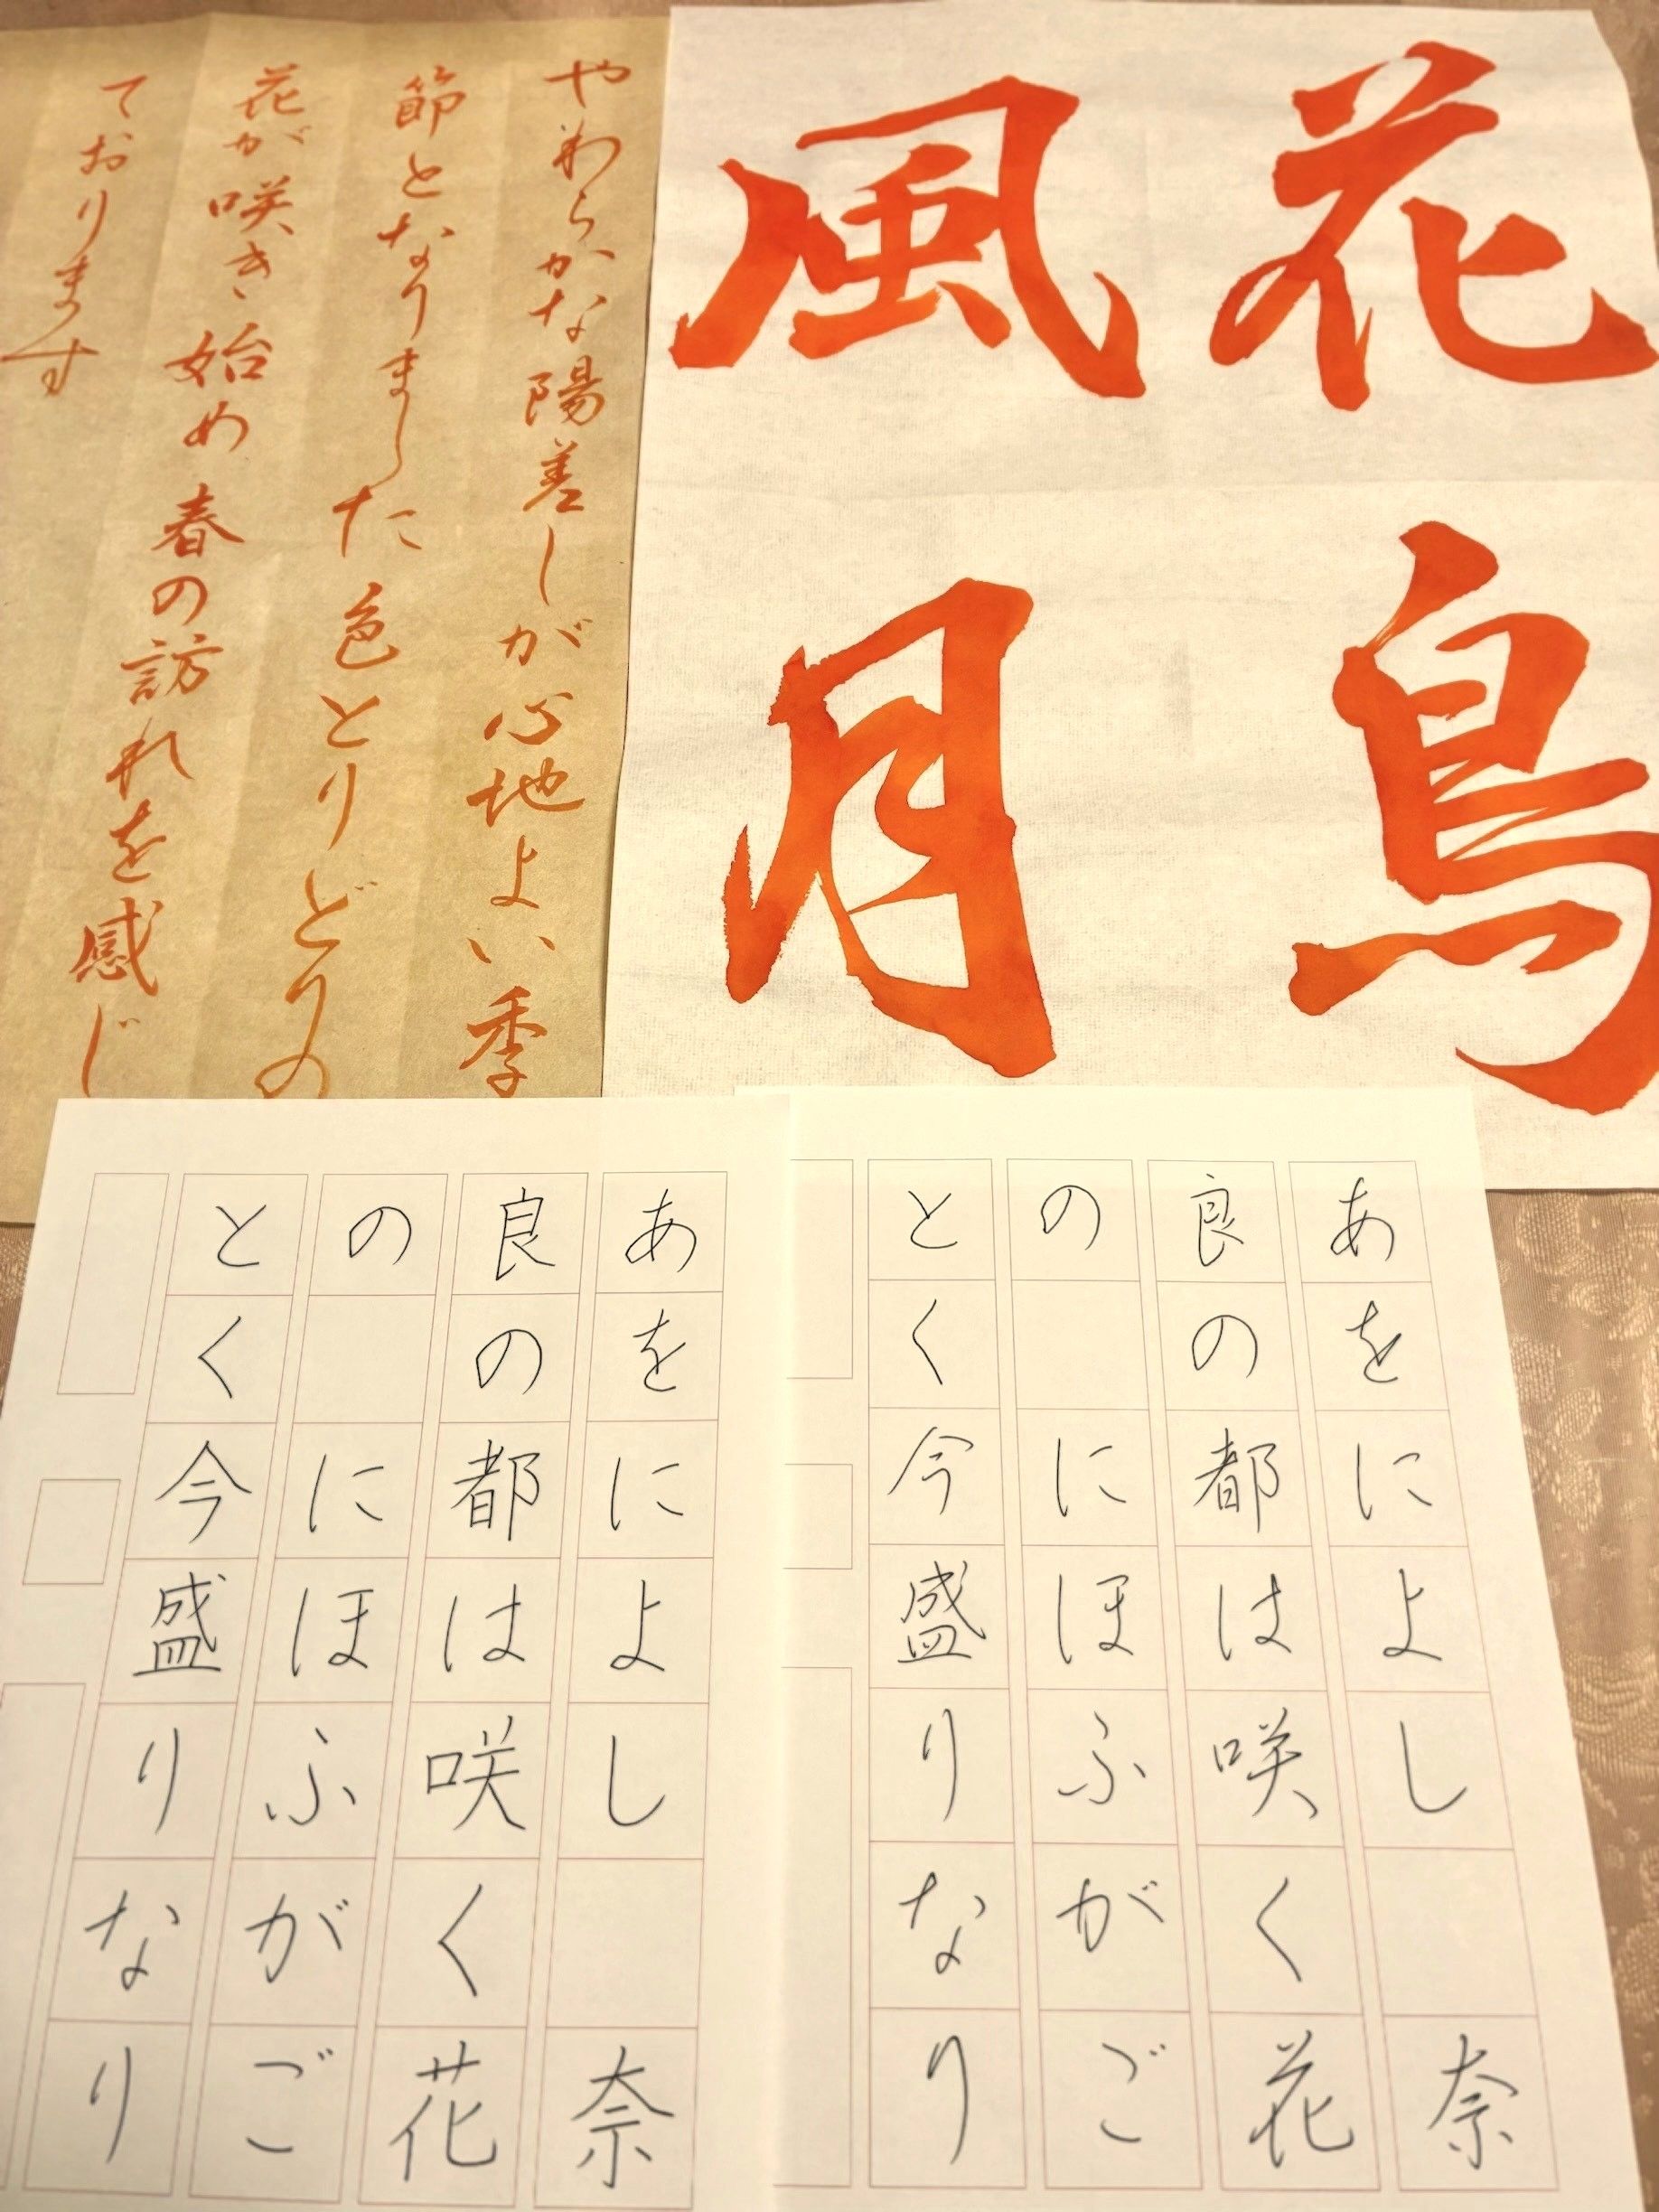 花鳥
風月
やわらかな陽差しが心地よい季
節となりました色とりどりの
花が咲き始め春の訪れを感じ
ております
あをによし　奈
良の都は咲く花
の　にほふがご
とく今盛りなり
あをによし　奈
良の都は咲く花
の　にほふがご
とく今盛りなり